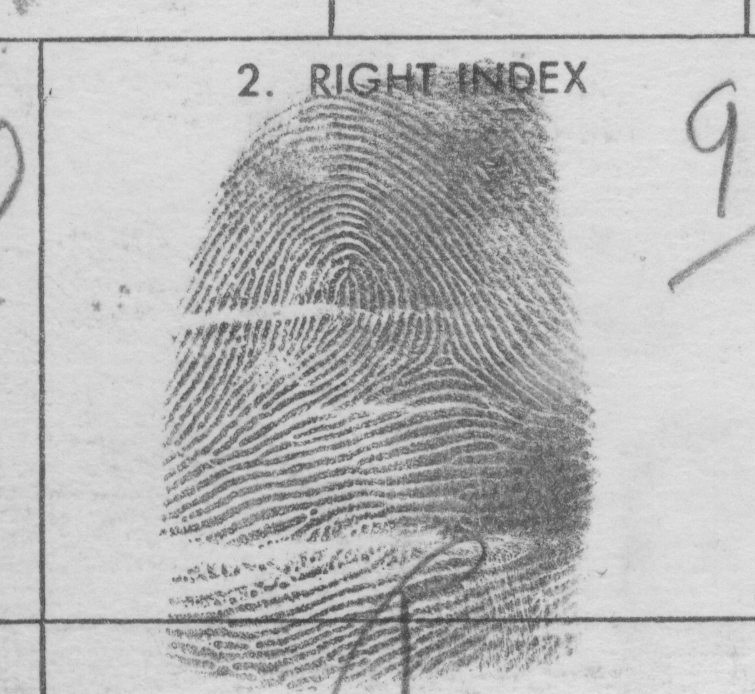 2. RIGHT INDEX
9